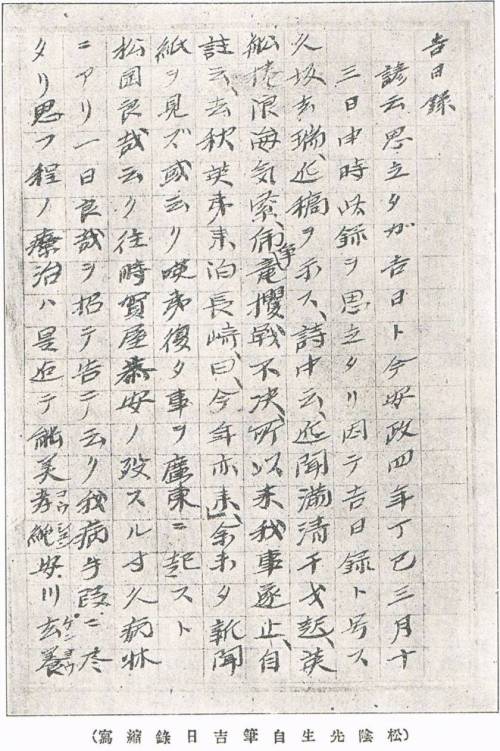 吉日録
諺云思立タガ吉日ト今安政四年丁巳三月十
三日申時此録ヲ思立タリ因テ吉日録ト号ス
久坂玄瑞近稿ヲ示ス、詩中云、近聞満清干戈起、英
船捲浪海気寒、竜攪戦不决、所以来我事遂止、自
註云、去秋英夷来泊長崎、曰、今年亦来、余未タ新聞
紙ヲ見ズ或云ク暎夷復タ事ヲ廣東ニ起スト
松岡良哉云ク往時賀屋恭安ノ歿スル寸久病牀
ニアリ一日良哉ヲ招テ告テ云ク我病牛段ニ
タリ思フ程ノ療治ハ是迠テ能美孝純安川玄養
コウジユン
ゲンヨウ
(松陰先生自筆吉日錄縮寫)